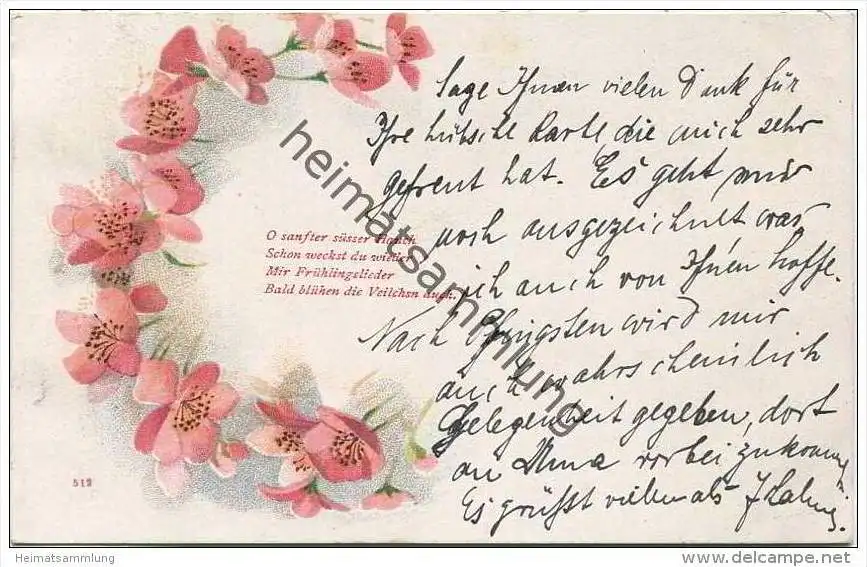 Sage Ihnen vielen Dank für
Ihre hübsche Karte die mich sehr
gefreut hat. Es geht mir
noch ausgezeichnet was
ich auch von Ihnen hoffe.
Nach Pfingsten wird mir
auch wahrscheinlich
Gelegenheit gegeben, dort
an vorbei zu kommen.
Es grüßt vielemals
O sanfter süsser Hauch
Schon weckst du wieder
Mir Frühlingslieder
Bald blühen die Veilchsn auch.
512
heimatsammlung
Heimatsammlung
www.delcampe.net